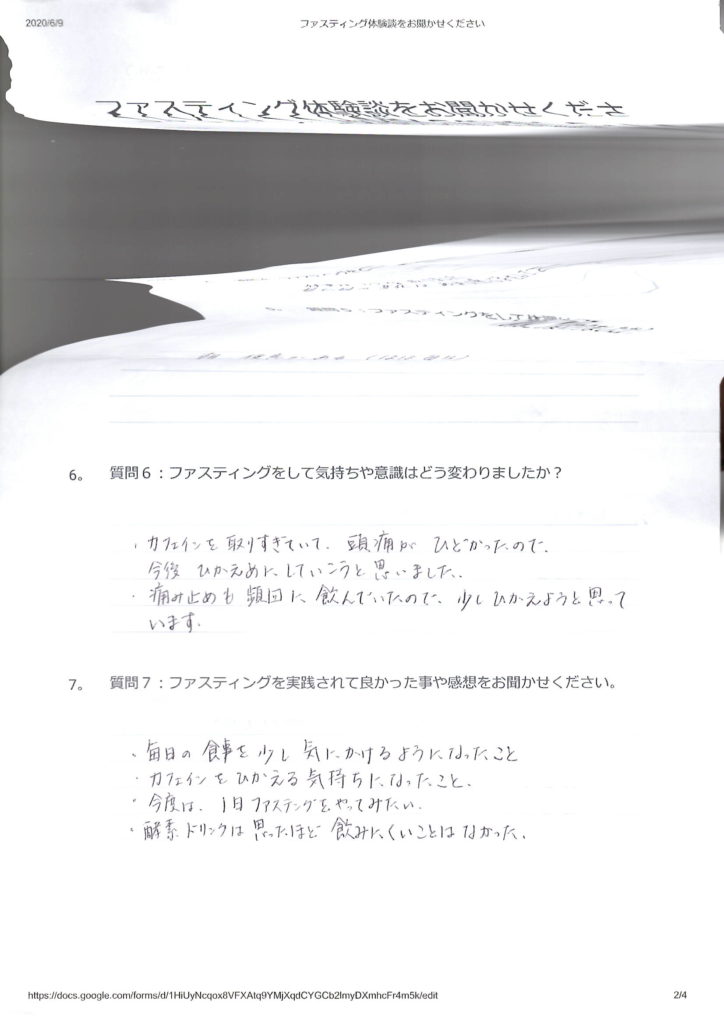 2020/6/9
ファスティング体験談をお聞かせください
ファスティング体験談をお聞かせくださ
質問5：ファスティングをして体
6。 質問６：ファスティングをして気持ちや意識はどう変わりましたか？
・カフェインを取りすぎていて、頭痛がひどかったので、
今後ひかえめにしていこうと思いました。
・痛み止めも頻回に飲んでいたので、少しひかえようと思って
います。
7。 質問７：ファスティングを実践されて良かった事や感想をお聞かせください。
・毎日の食事を少し気にかけるようになったこと
・カフェインをひかえる気持ちになったこと、
・今度は、1日ファステングをやってみたい。
・酵素ドリンクは思ったほど飲みにくいことはなかった、
https://docs.google.com/forms/d/1HiUyNcqox8VFXAtq9YMjXqdCYGCb2lmyDXmhcFr4m5k/edit
2/4